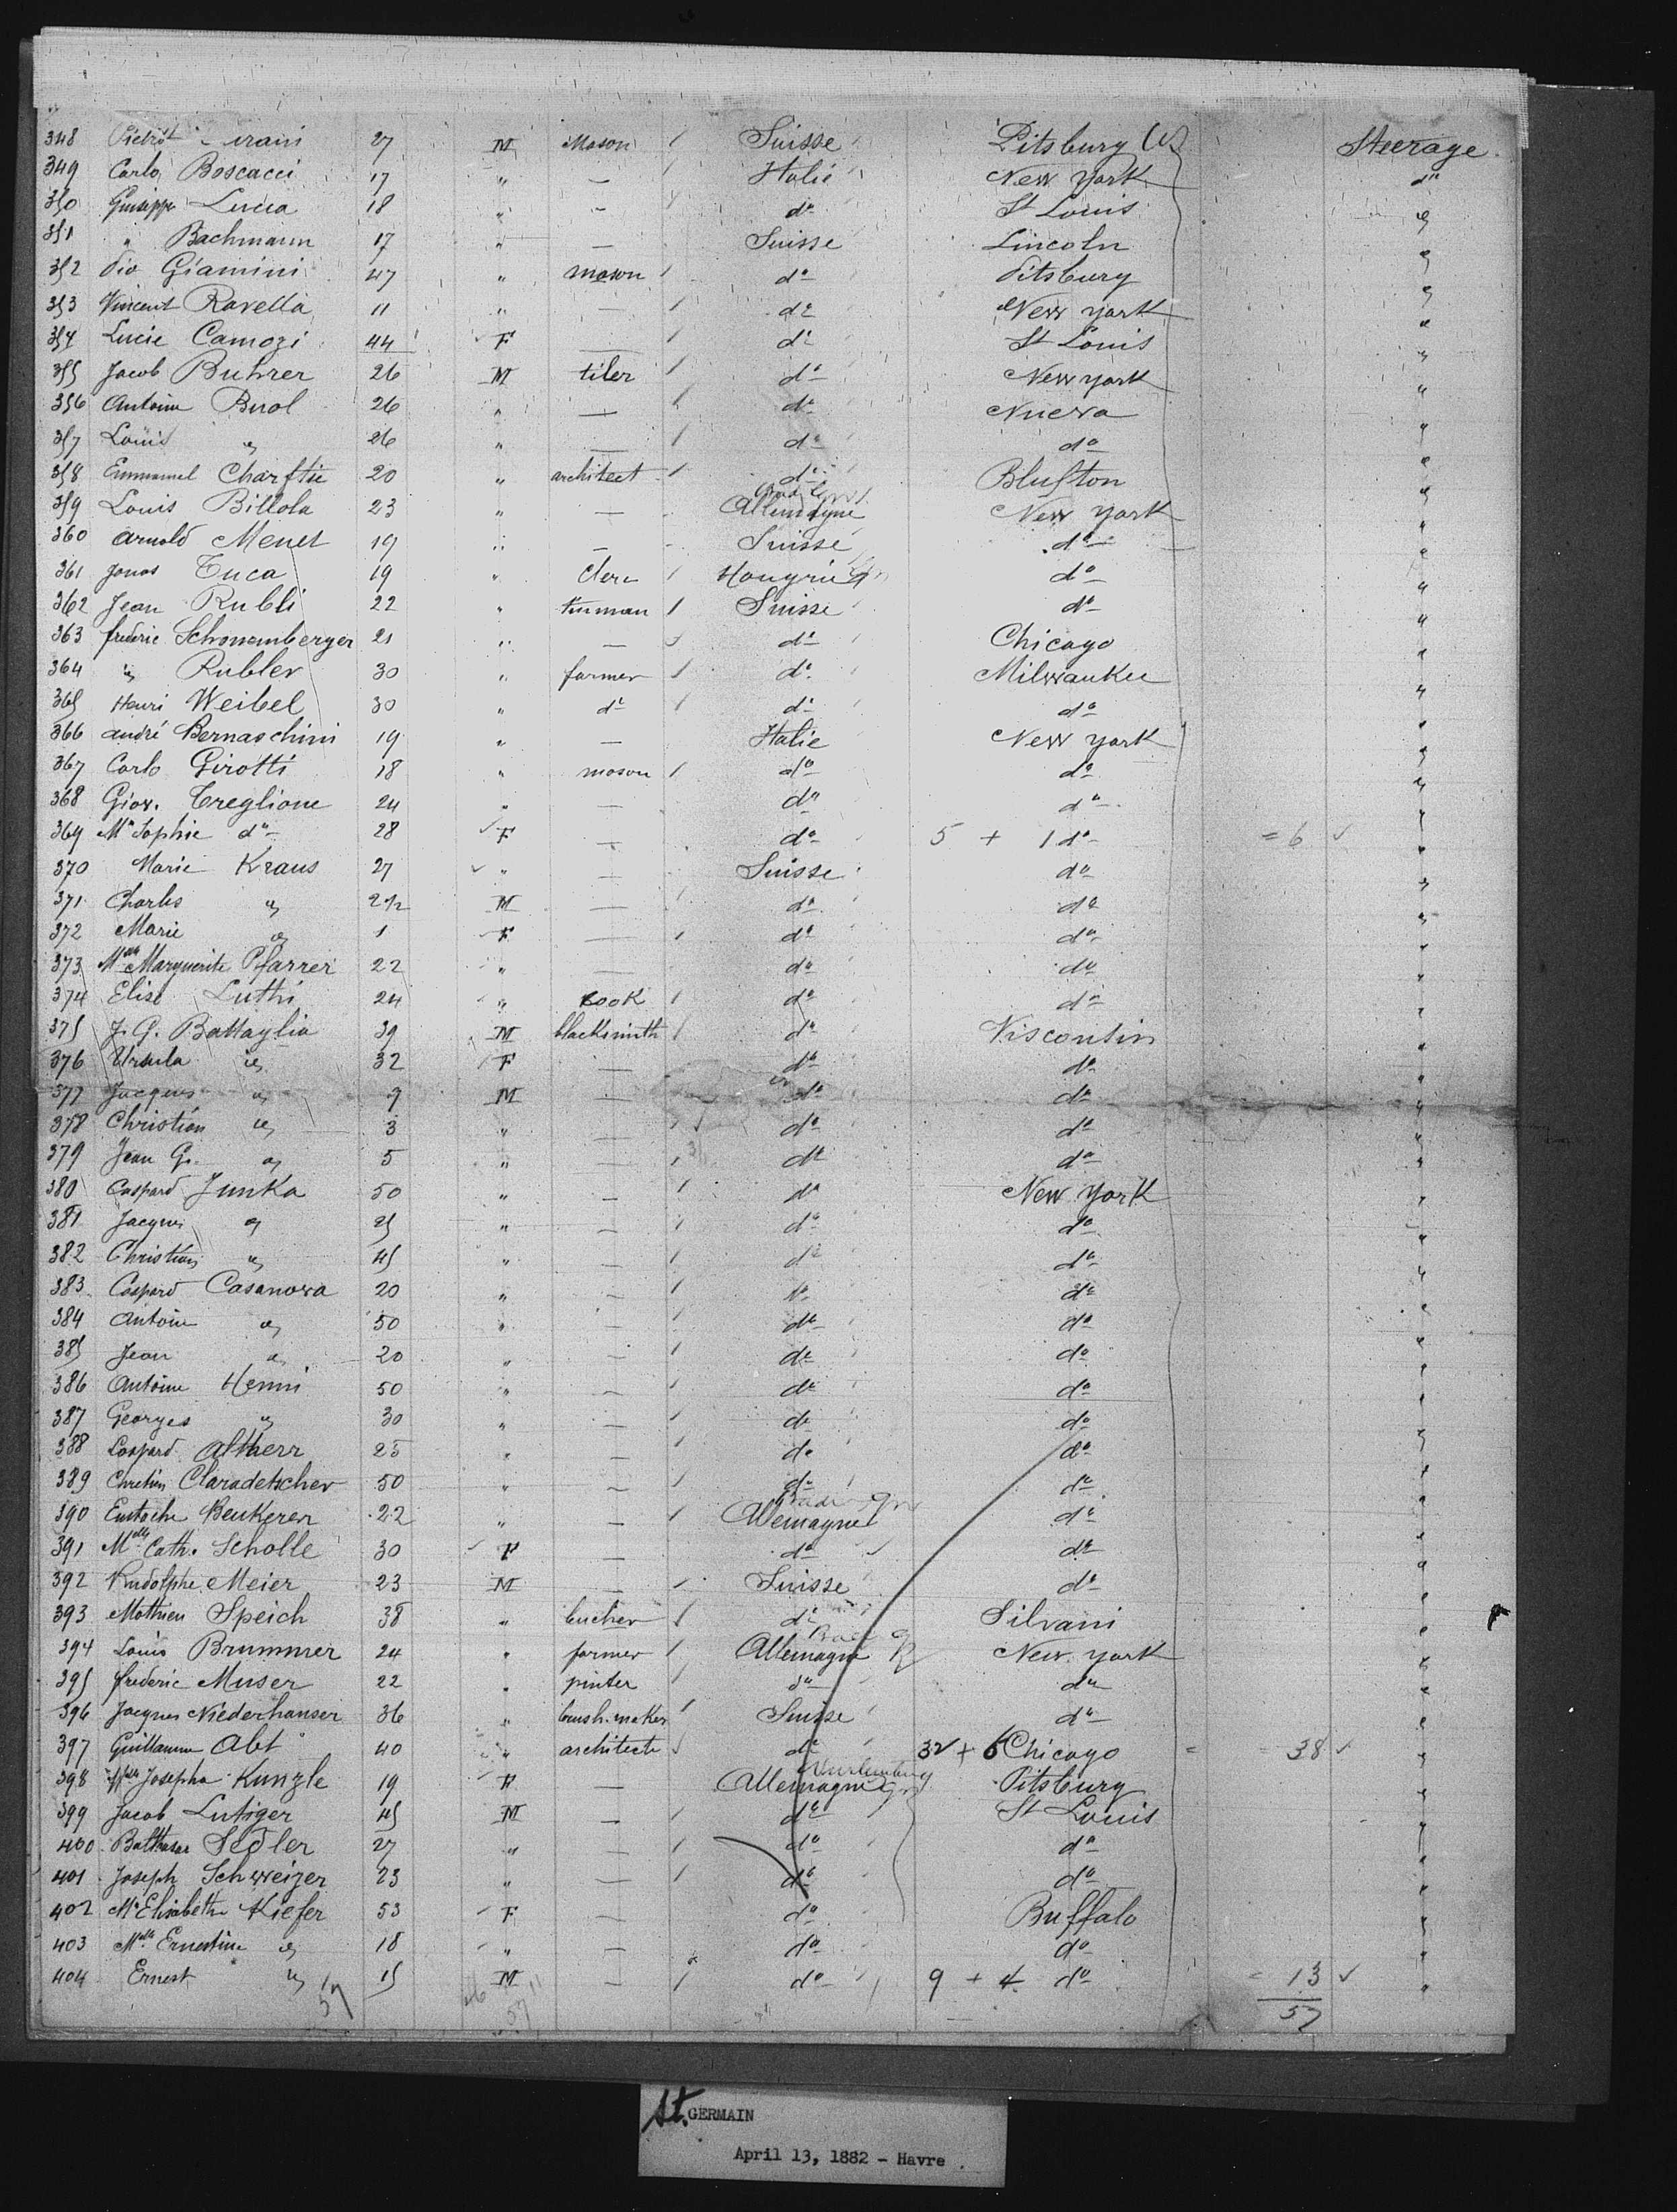 348 27 M Mason Suisse Pitsburg Steerage
349 Carlo Boscacci 17 " — Italie New York do
350 Guiseppe Lucca 18 " — do St Louis "
351 " Bachmann 17 " — Suisse Lincoln "
352 Pio Giamini 47 " mason do Pitsburg "
353 Vincent Ravella 11 " — do New York "
354 Lucie Camozi 44 F — do St Louis "
355 Jacob Buhrer 26 M tiler do New york "
356 Antoine Buol 26 " — do Nueva "
357 Louis " 26 " — do do "
358 Emmanuel Charftie 20 " architect do Blufton "
359 Louis Billola 23 " — Allemagne New York "
360 Arnold Menet 19 " — Suisse do "
361 Jonas Tuca 19 " Clerc Hongrie do "
362 Jean Rubli 22 " tinman Suisse do "
363 frederic Schonemberger 21 " — do Chicago "
364 " Rubler 30 " farmer do Milwaukee "
365 Henri Weibel 30 " do do do "
366 andré Bernaschini 19 " — Italie New York "
367 Carlo Girotti 18 " mason do do "
368 Giov. Treglione 24 " — do do "
369 Me Sophie do 28 F — do 5 + 1 do = 6 "
370 Marie Kraus 27 " — Suisse do "
371 Charles " 2 1/2 M — do do "
372 Marie " 1 F — do do "
373 Melle Marguerite Pfarrer 22 " — do do "
374 Elise Luthi 24 " Cook do do "
375 J. G. Battaglia 39 M blacksmith do Visconsin "
376 Ursula " 32 F — do do "
377 Jacques " 9 M — do do "
378 Christian " 3 " — do do "
379 Jean G. " 5 " — do do "
380 Caspard Junka 50 " — do New York "
381 Jacques " 25 " — do do "
382 Christian " 45 " — do do "
383 Caspard Casanova 20 " — do do "
384 Antoine " 50 " — do do "
385 Jean " 20 " — do do "
386 Antoine Henni 50 " — do do "
387 Georges " 30 " — do do "
388 Caspard Altherr 25 " — do do "
389 Chretien Claradetscher 50 " — do do "
390 Eustache Beukerer 22 " — Allemagne do "
391 Melle Cath. Scholle 30 F — do do "
392 Rudolphe Meier 23 M — Suisse do "
393 Mathieu Speich 38 " bucher do Silvani "
394 Louis Brummer 24 " farmer Allemagne New york "
395 frederic Muser 22 " pinter do do "
396 Jacques Niederhauser 36 " brush.maker Suisse do "
397 Guillaume Abt 40 " architecte do 32 + 6 Chicago = 38 "
398 Melle Josepha Kunzle 19 F — Allemagne Wurtemburg Pitsburg "
399 Jacob Lutiger 45 M — do St Louis "
400 Balthasar Sedler 27 " — do do "
401 Joseph Schweizer 23 " — do do "
402 Me Elisabeth Kiefer 53 F — do Buffalo "
403 Melle Ernestine " 18 " — do do "
404 Ernest " 15 M — do 9 + 4 do = 13 "
57 57 57
St. GERMAIN
April 13, 1882 - Havre